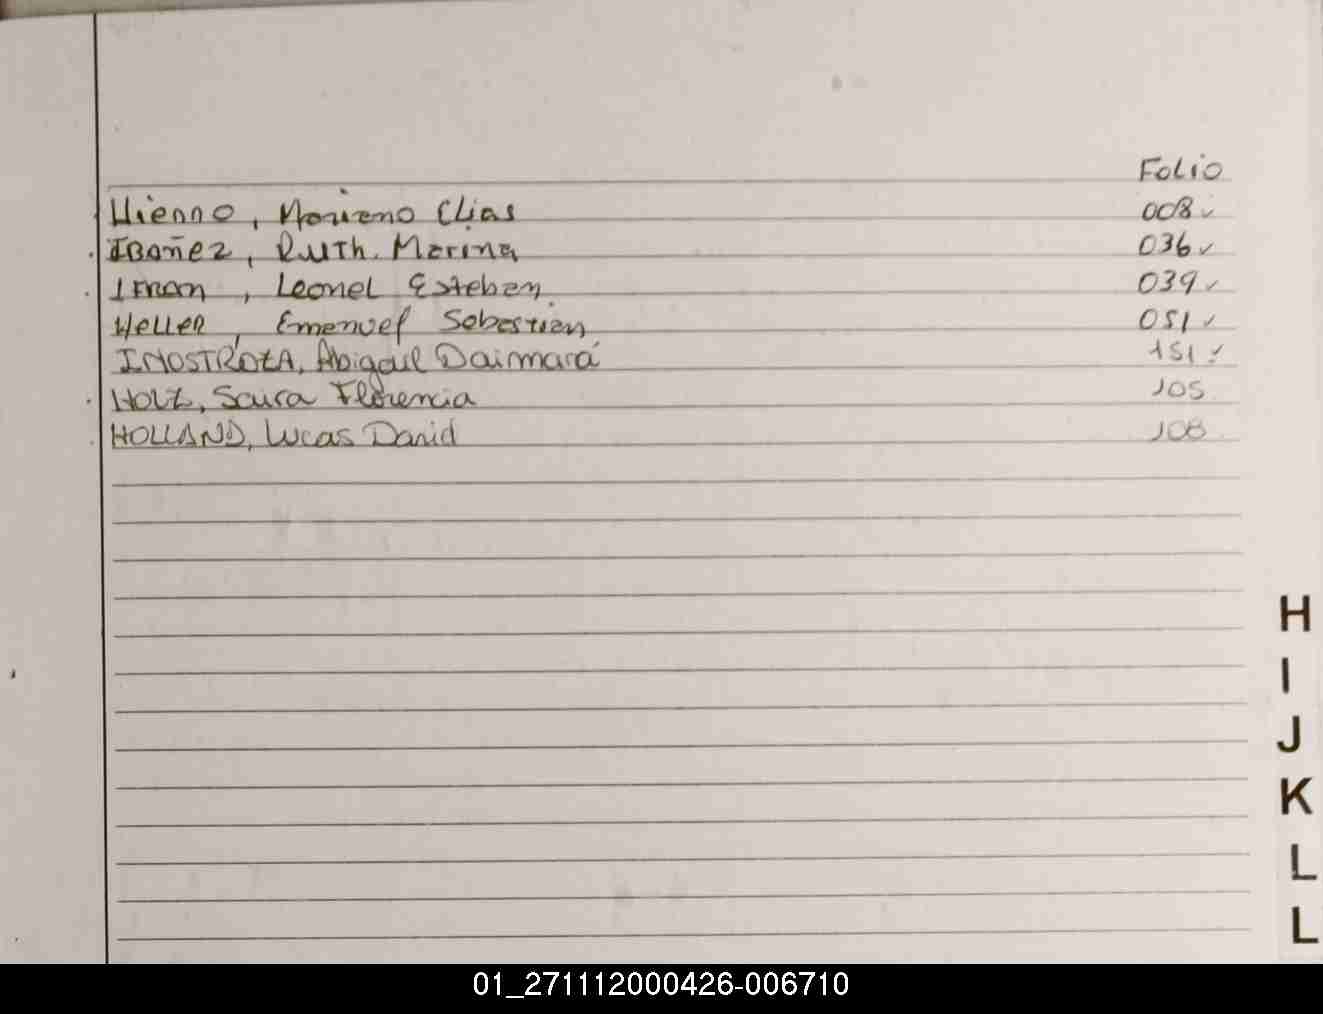 Folio
Hienno, Moriano Elias 008 ✓
IBAÑEZ, RUTH. Marina 036 ✓
Iman, Leonel Esteban. 039 ✓
Heller, Emanuel Sebastian 051 ✓
INOSTROZA, Abigail Daimará 151 ✓
HOLZ, Saira Florencia 105
HOLLAND, Lucas David 108
H
I
J
K
L
L
01_271112000426-006710